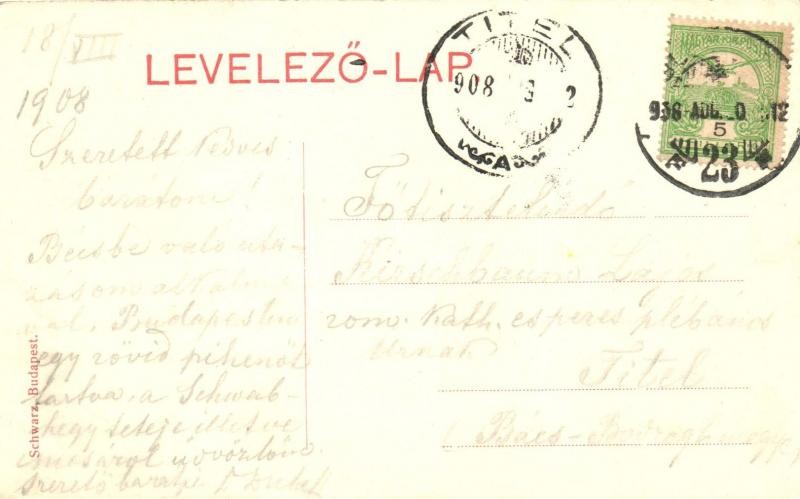 18/VIII
1908
LEVELEZŐ-LAP
TITEL
908
2
MAGYAR KIR. POSTA
5
23
Szeretett kedves
barátom!
Bécsbe való uta-
zásom alkalmá-
val, Budapesten
egy rövid pihenőt
tartva, a Schwab-
hegy teteje illetve
üdvözlöm
szerető barátja
Főtisztelendő
Kirschbaum Lajos
rom. kath. esperes plébános
Úrnak
Titel
Bács-Bodrogh megye
Schwarz, Budapest.